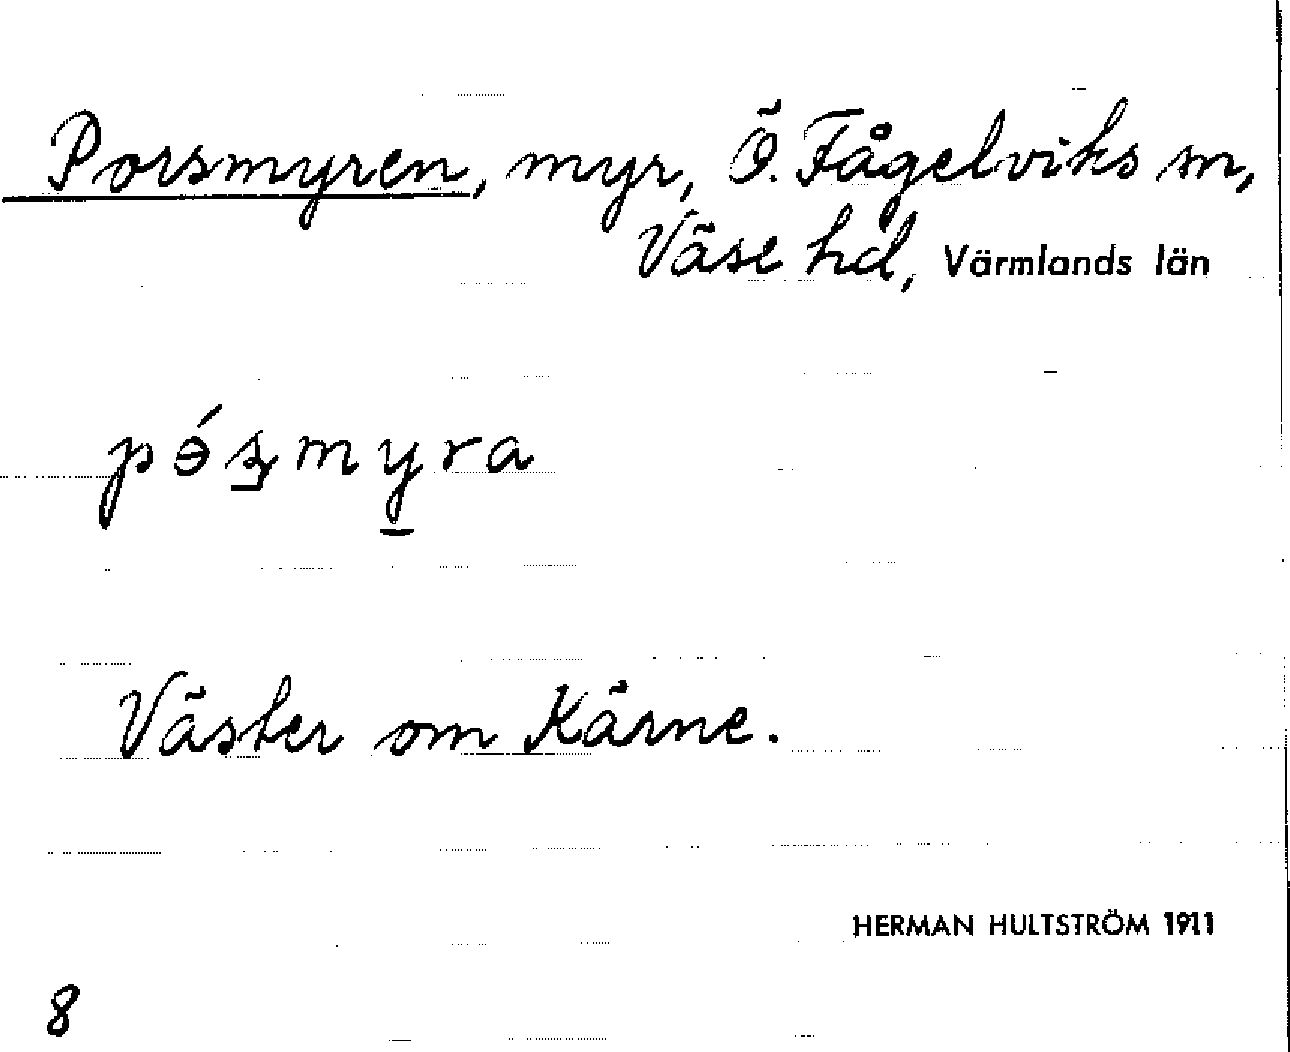 Porsmyren, myr, Ö. Fågelviks sn,
Väse hd, Värmlands län
pɵ́ʂmyra
Väster om Kärne.
HERMAN HULTSTRÖM 1911
8